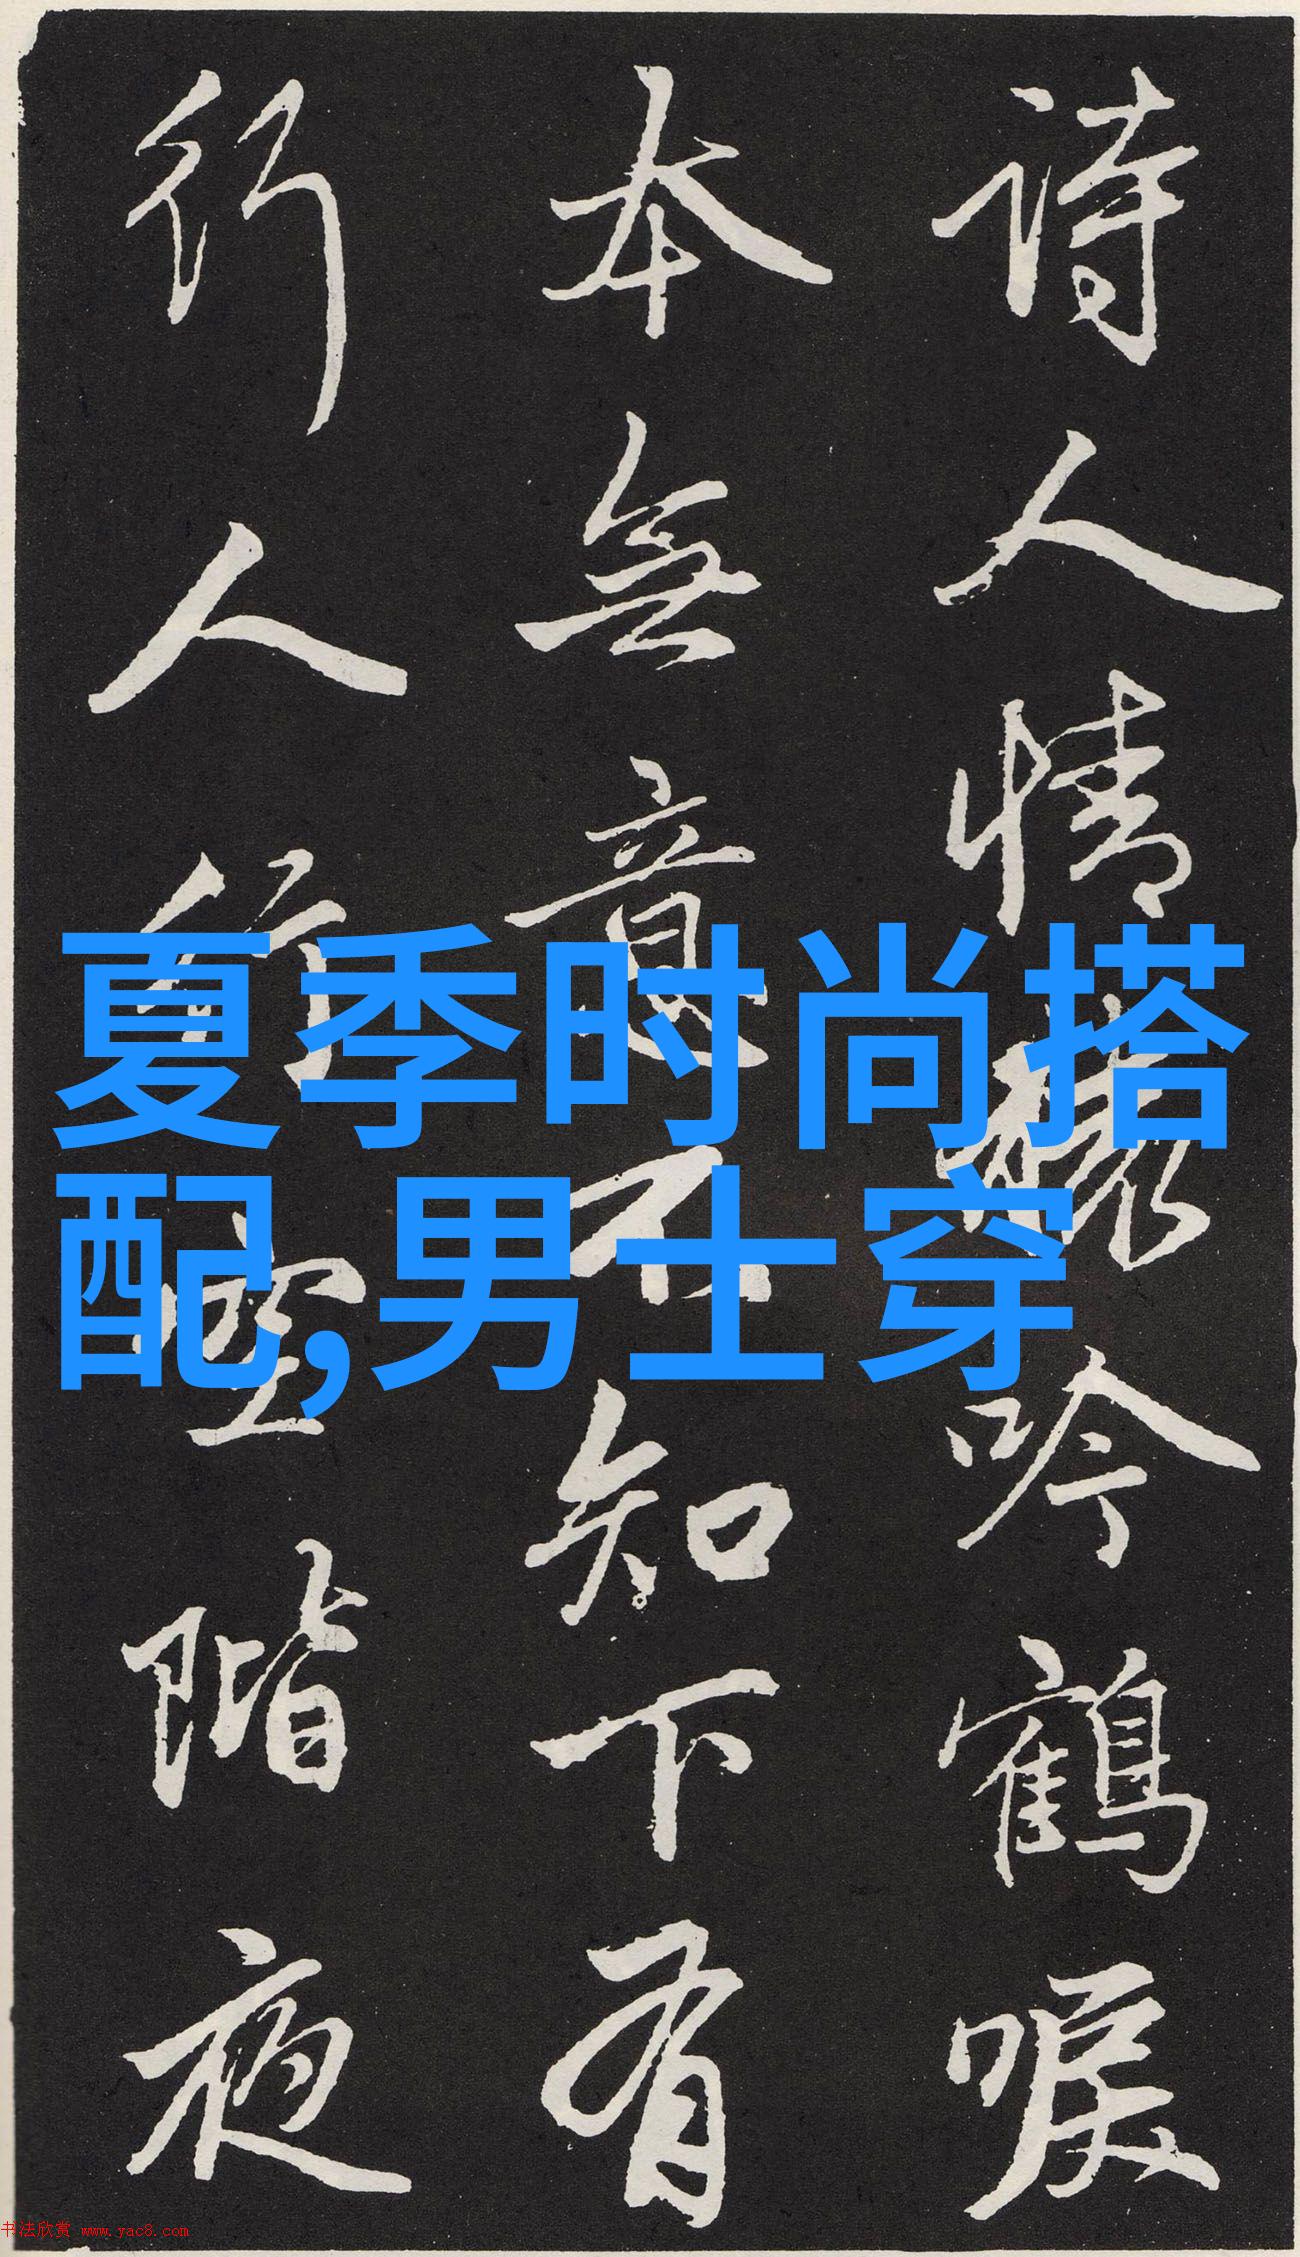 诗人情橠吟鶴唳
本無意不知下有
行人行空階夜
夏季时尚搭
配,男士穿
书法欣赏 www.yac8.com